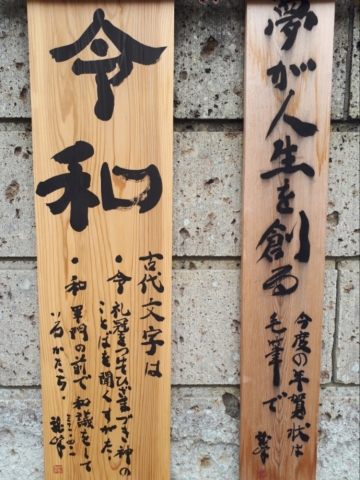 夢が人生を創る
今度の年賀状は
毛筆で
令和
古代文字は
・令 礼冠をつけひざまづき神の
ことばを聞くすがた。
・和 軍門の前で和議をして
いるかたち。